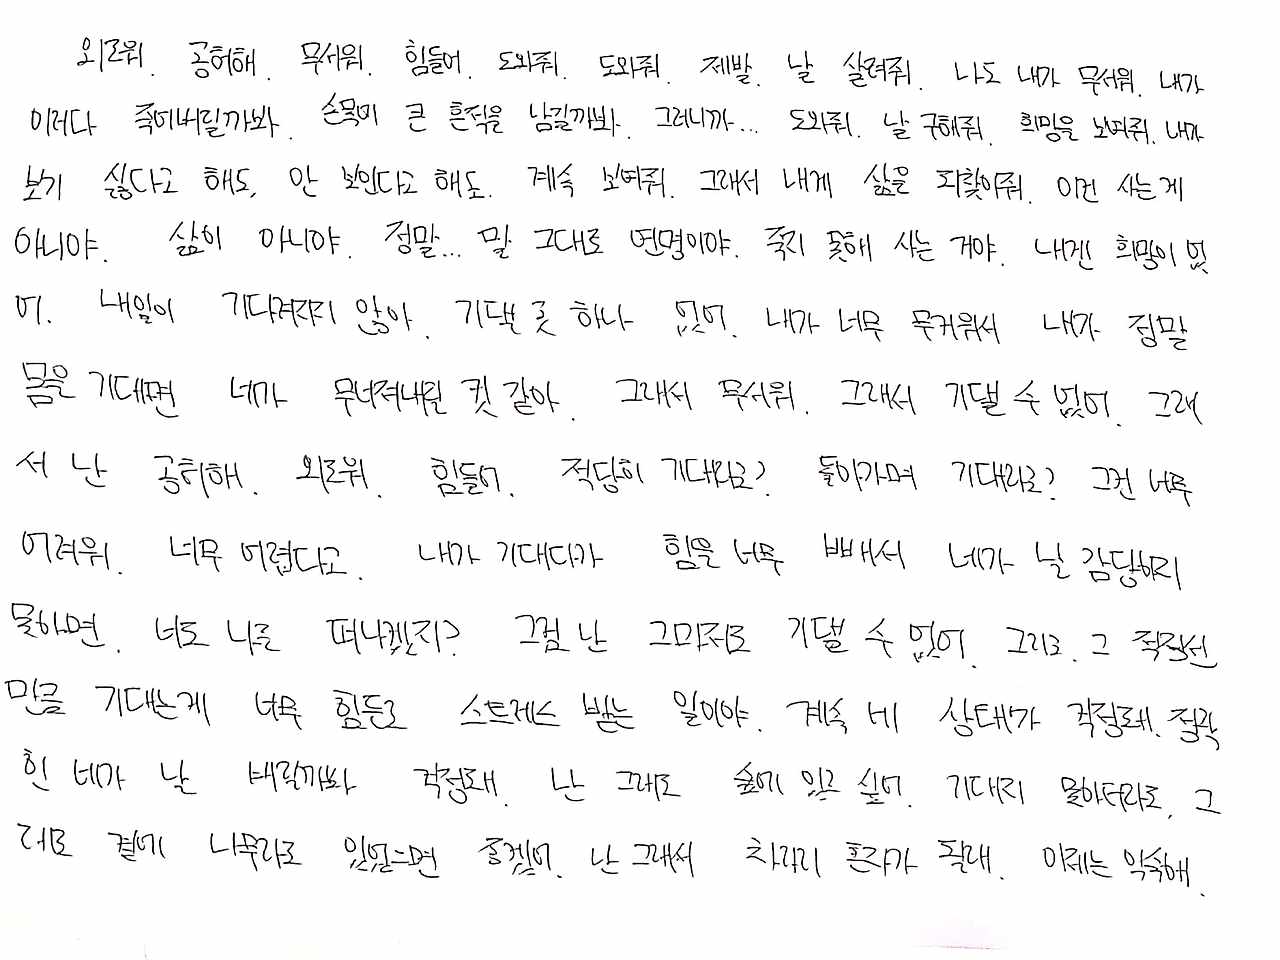 외로워. 공허해. 무서워. 힘들어. 도와줘. 도와줘. 제발. 날 살려줘. 나도 내가 무서워. 내가
이러다 죽어버릴까봐. 손목에 큰 흔적을 남길까봐. 그러니까... 도와줘. 날 구해줘. 희망을 보여줘. 내가
보기 싫다고 해도, 안 보인다고 해도. 계속 보여줘. 그래서 내게 삶을 되찾아줘. 이건 사는게
아니야. 삶이 아니야. 정말... 말 그대로 연명이야. 죽지 못해 사는 거야. 내겐 희망이 없
어. 내일이 기다려지지 않아. 기댈 곳 하나 없어. 내가 너무 무거워서 내가 정말
몸을 기대면 네가 무너져내릴 것 같아. 그래서 무서워. 그래서 기댈 수 없어. 그래
서 난 공허해. 외로워. 힘들어. 적당히 기대라고? 돌아가며 기대라고? 그건 너무
어려워. 너무 어렵다고. 내가 기대다가 힘을 너무 빼서 네가 날 감당하지
못하면. 너도 나를 떠나겠지? 그럼 난 그마저도 기댈 수 없어. 그리고. 그 적정선
만큼 기대는게 너무 힘들고 스트레스 받는 일이야. 계속 네 상태가 걱정돼. 정확
힌 네가 날 버릴까봐 걱정돼. 난 그래도 숲에 있고 싶어. 기대지 못하더라도. 그
래도 곁에 나무라도 있었으면 좋겠어. 난 그래서 차라리 혼자가 될래. 이제는 익숙해.